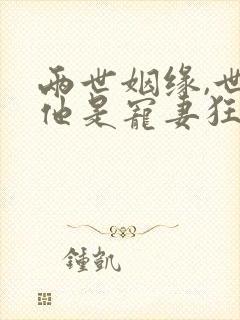 兩世姻缘,世
他是寵妻狂
鍾凱